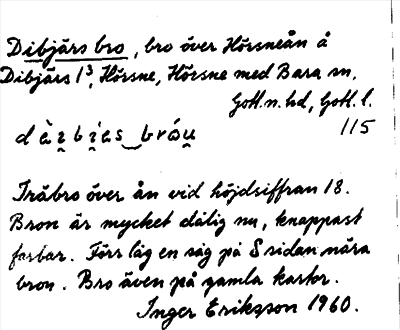 Dibjärs bro, bro över Hörsneån å
Dibjärs 1³, Hörsne, Hörsne med Bara sn.
Gotl. n. hd, Gotl. l.
115
Träbro över ån vid höjdsiffran 18.
Bron är mycket dålig nu, knappast
farbar. Förr låg en såg på S sidan nära
bron. Bro även på gamla kartor.
Inger Eriksson 1960.